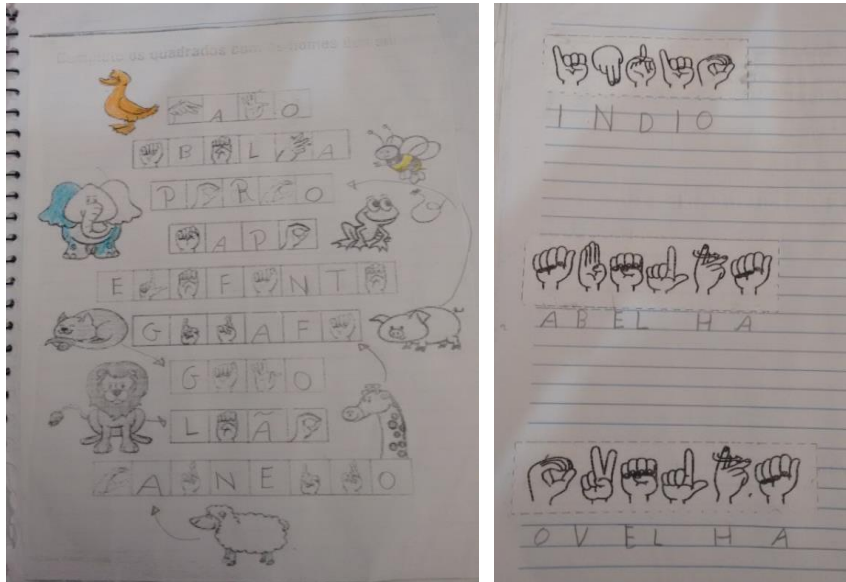 Complete os quadrados com os nomes dos
A O
B L A
P R O
A P
E F N T
G A F
G O
L Ã
A N E O
I N D I O
A B E L H A
O V E L H A